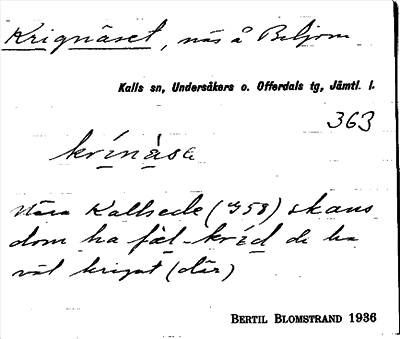 Krignäset, näs å Beljom
Kalls sn, Undersåkers o. Offerdals tg, Jämtl. l.
363
krínàsa
Nära Kallsede (458) skans
dom ha fàl krid de ha
väl krigat (där)
BERTIL BLOMSTRAND 1936